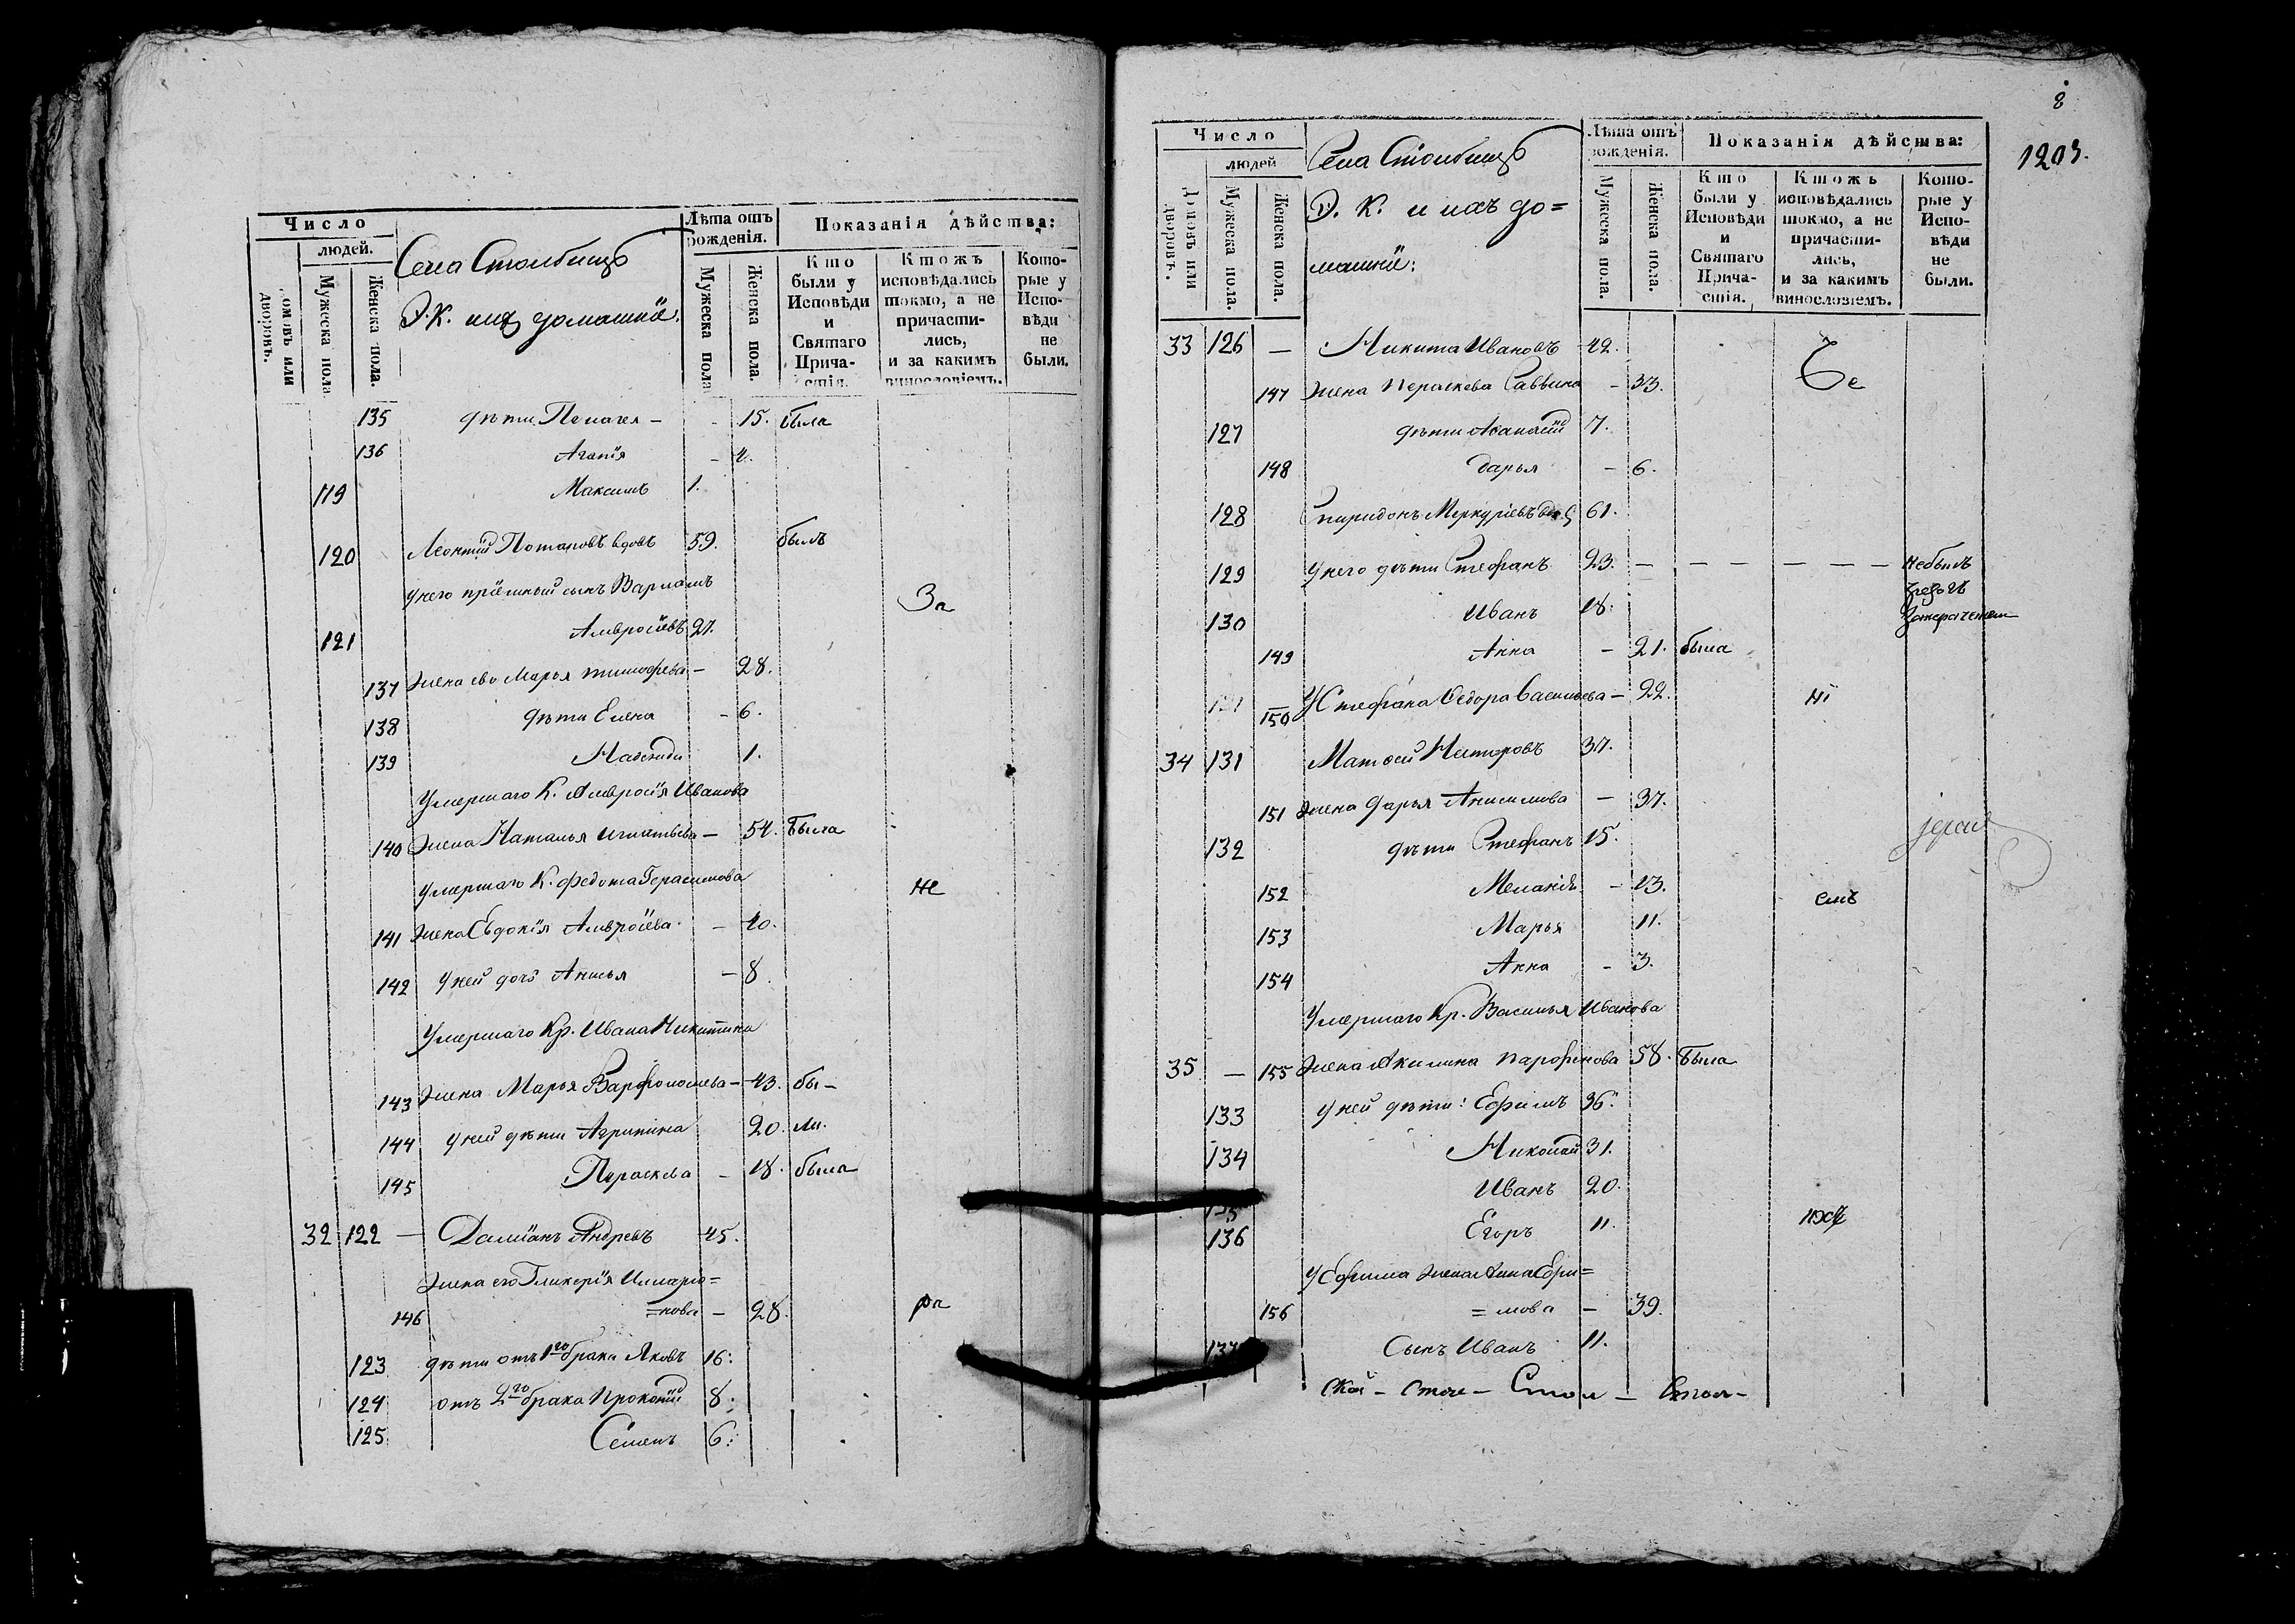 Число
людей.
Домовъ или дворовъ.
Мужеска пола
Женска пола.
Села Столбищъ
Э. К. и ихъ домашніе.
Лѣта отъ рожденія.
Мужеска пола
Женска пола.
Показанія дѣйства:
Кто были у Исповѣди и Святаго Причастія.
Ктожъ исповѣдались токмо, а не причастились, и за какимъ винословіемъ.
Которые у Исповѣди не были.
135 дѣти Пелагея – - 15. была
136 Агапія - 4.
119 Максимъ 1.
120 Леонтій Потаповъ вдовъ 59. былъ
у него пріемный сынъ Варламъ
За
121 Амвросіевъ 27.
137 Жена ево Марья Тимофева – 28.
138 дѣти Елена - 6.
139 Надежда 1.
Умершаго К. Амвросія Иванова
140 Жена Наталья Игнатьева – 54. Была
Умершаго К. Федота Герасимова
не
141 Жена Евдокія Амвросіева – 40.
142 у ней дочь Анисья – 8
Умершаго Кр. Ивана Никитина
143 Жена Марья Варфоломева – 43. бы-
144 у ней дѣти Агрипина 20. ли.
145 Параскева – 18. была
32 122 – Даміанъ Андревъ 45.
Жена его Гликерія Иларіо=
146 =нова – 28. ра
123 дѣти отъ 1го брака Яковъ 16:
124 отъ 2го брака Прокопій 8:
125 Семенъ 6:
8
1203.
Число
людей
Домовъ или дворовъ.
Мужеска пола.
Женска пола.
Села Столбищъ
Э. К. и ихъ до=
машніе:
Лѣта отъ рожденія.
Мужеска пола.
Женска пола.
Показанія дѣйства:
Кто были у Исповѣди и Святаго Причастія.
Ктожъ исповѣдались токмо, а не причастились, и за какимъ винословіемъ.
Которые у Исповѣди не были.
33 126 – Никита Ивановъ 42.
бе
147 Жена Параскева Саввина – 33.
127 дѣти Афанасій 7.
148 Дарья – 6.
128 Спиридонъ Меркуріевъ 61.
129 у него дѣти Стефанъ 23. – – – – – – небылъ
130 Иванъ 18.
149 Анна – 21. была
150 У Стефана Федора Васильева – 22. ні
34 131 Матфей Нестеровъ 37.
151 Жена Дарья Анисимова – 37.
132 дѣти Стефанъ 15.
152 Меланія – 13. емъ
153 Марья 11.
154 Анна - 3.
Умершаго Кр. Василья Иванова
35 – 155 Жена Акилина Парфенова 58. Была
133 у ней дѣти: Ефимъ 36.
134 Николай 31.
135 Иванъ 20.
136 Егоръ 11. ихъ
У Ефима жена Анна Ефи=
156 =мова – 39.
137 Сынъ Иванъ 11.